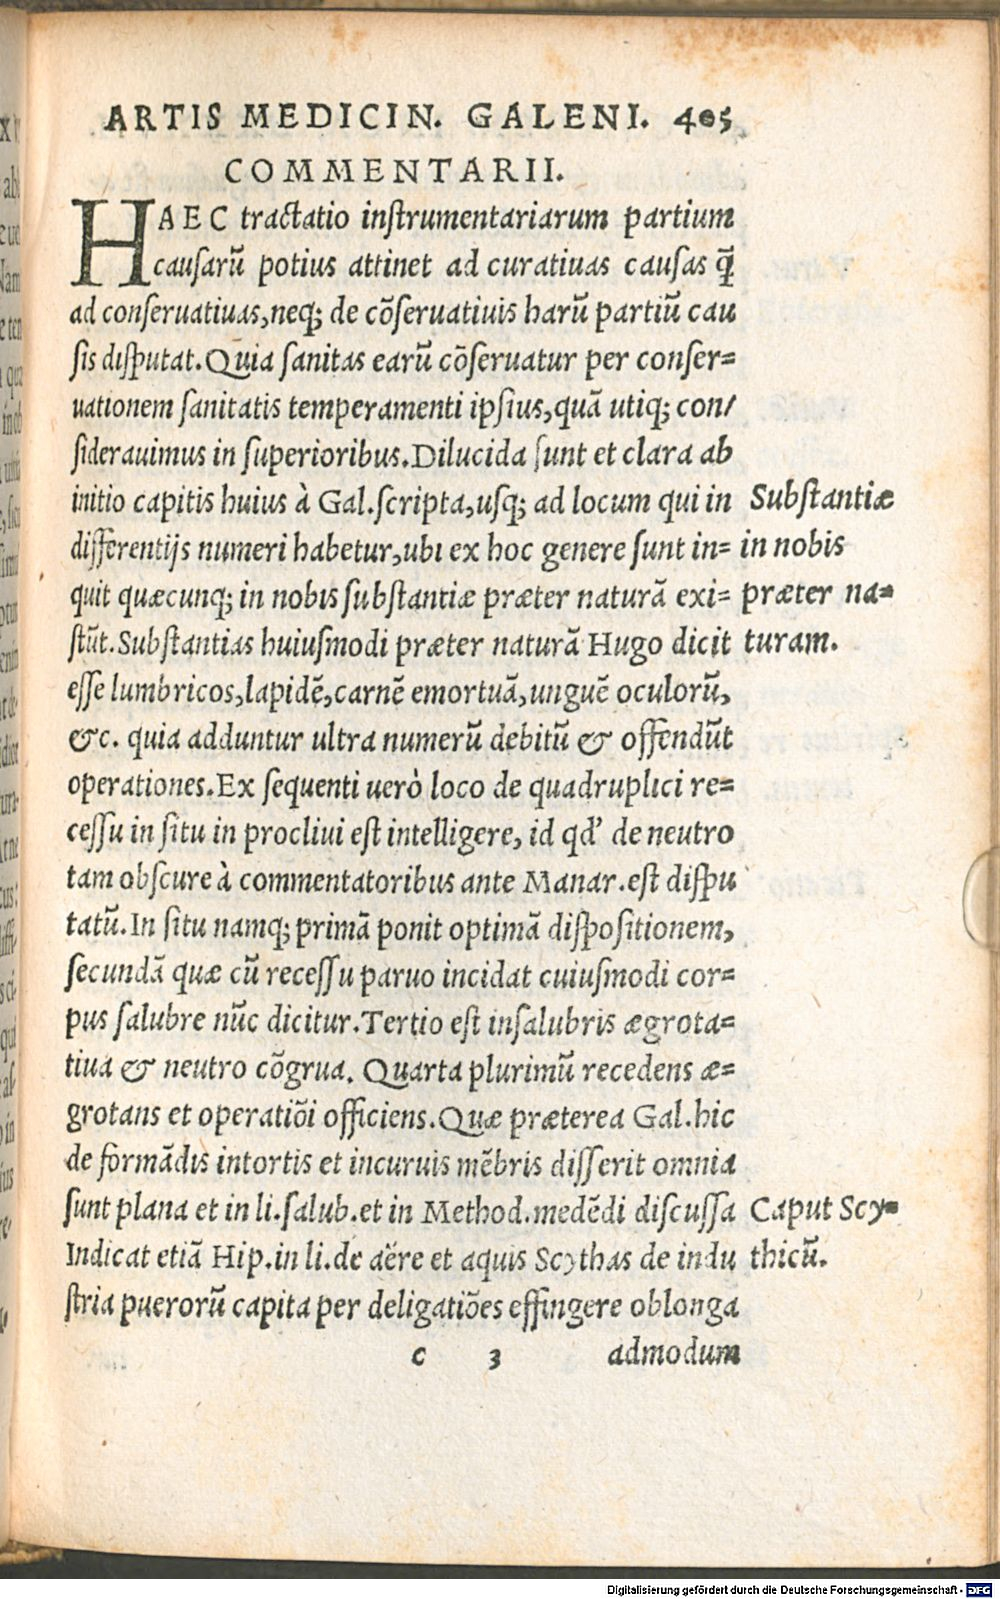 ARTIS MEDICIN. GALENI. 405
COMMENTARII.
HAEC tractatio instrumentariarum partium
causarũ potius attinet ad curatiuas causas q̃
ad conseruatiuas, neq; de cõseruatiuis harũ partiũ cau
sis disputat. Quia sanitas earũ cõseruatur per conser=
uationem sanitatis temperamenti ipsius, quã utiq; con/
siderauimus in superioribus. Dilucida sunt et clara ab
initio capitis huius à Gal. scripta, usq; ad locum qui in
differentijs numeri habetur, ubi ex hoc genere sunt in=
quit quæcunq; in nobis substantiæ præter naturã exi=
stũt. Substantias huiusmodi præter naturã Hugo dicit
esse lumbricos, lapidẽ, carnẽ emortuã, unguẽ oculorũ,
&c. quia adduntur ultra numerũ debitũ & offendũt
operationes. Ex sequenti uerò loco de quadruplici re=
cessu in situ in procliui est intelligere, id qd' de neutro
tam obscure à commentatoribus ante Manar. est dispu
tatũ. In situ namq; primã ponit optimã dispositionem,
secundã quæ cũ recessu paruo incidat cuiusmodi cor=
pus salubre nũc dicitur. Tertio est insalubris ægrota=
tiua & neutro cõgrua. Quarta plurimũ recedens æ=
grotans et operatiõi officiens. Quæ præterea Gal. hic
de formãdis intortis et incuruis mẽbris disserit omnia
sunt plana et in li. salub. et in Method. medẽdi discussa
Indicat etiã Hip. in li. de aëre et aquis Scythas de indu
stria puerorũ capita per deligatiões effingere oblonga
c 3 admodum
Substantiæ
in nobis
præter na=
turam.
Caput Scy=
thicũ.
Digitalisierung gefördert durch die Deutsche Forschungsgemeinschaft - DFG